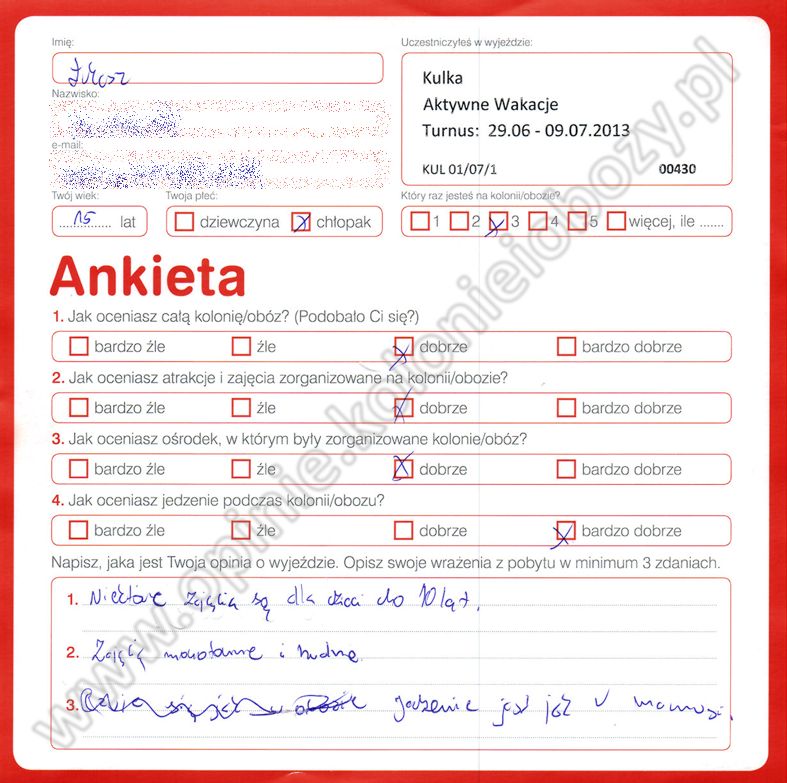 Imię:
Uczestniczyłeś w wyjeździe:
Nazwisko:
Kulka
Aktywne Wakacje
Turnus: 29.06 - 09.07.2013
e-mail:
KUL 01/07/1 00430
Twój wiek: Twoja płeć: Który raz jesteś na kolonii/obozie?
15 lat dziewczyna chłopak 1 2 3 4 5 więcej, ile .......
Ankieta
1. Jak oceniasz całą kolonię/obóz? (Podobało Ci się?)
bardzo źle źle dobrze bardzo dobrze
2. Jak oceniasz atrakcje i zajęcia zorganizowane na kolonii/obozie?
bardzo źle źle dobrze bardzo dobrze
3. Jak oceniasz ośrodek, w którym były zorganizowane kolonie/obóz?
bardzo źle źle dobrze bardzo dobrze
4. Jak oceniasz jedzenie podczas kolonii/obozu?
bardzo źle źle dobrze bardzo dobrze
Napisz, jaka jest Twoja opinia o wyjeździe. Opisz swoje wrażenia z pobytu w minimum 3 zdaniach.
1. Niektóre zajęcia są dla dzieci do 10 lat.
2. Zajęcia monotonne i nudne.
3. Jedzenie jest jak u mamusi.
www.opinie.kolonieiobozy.pl